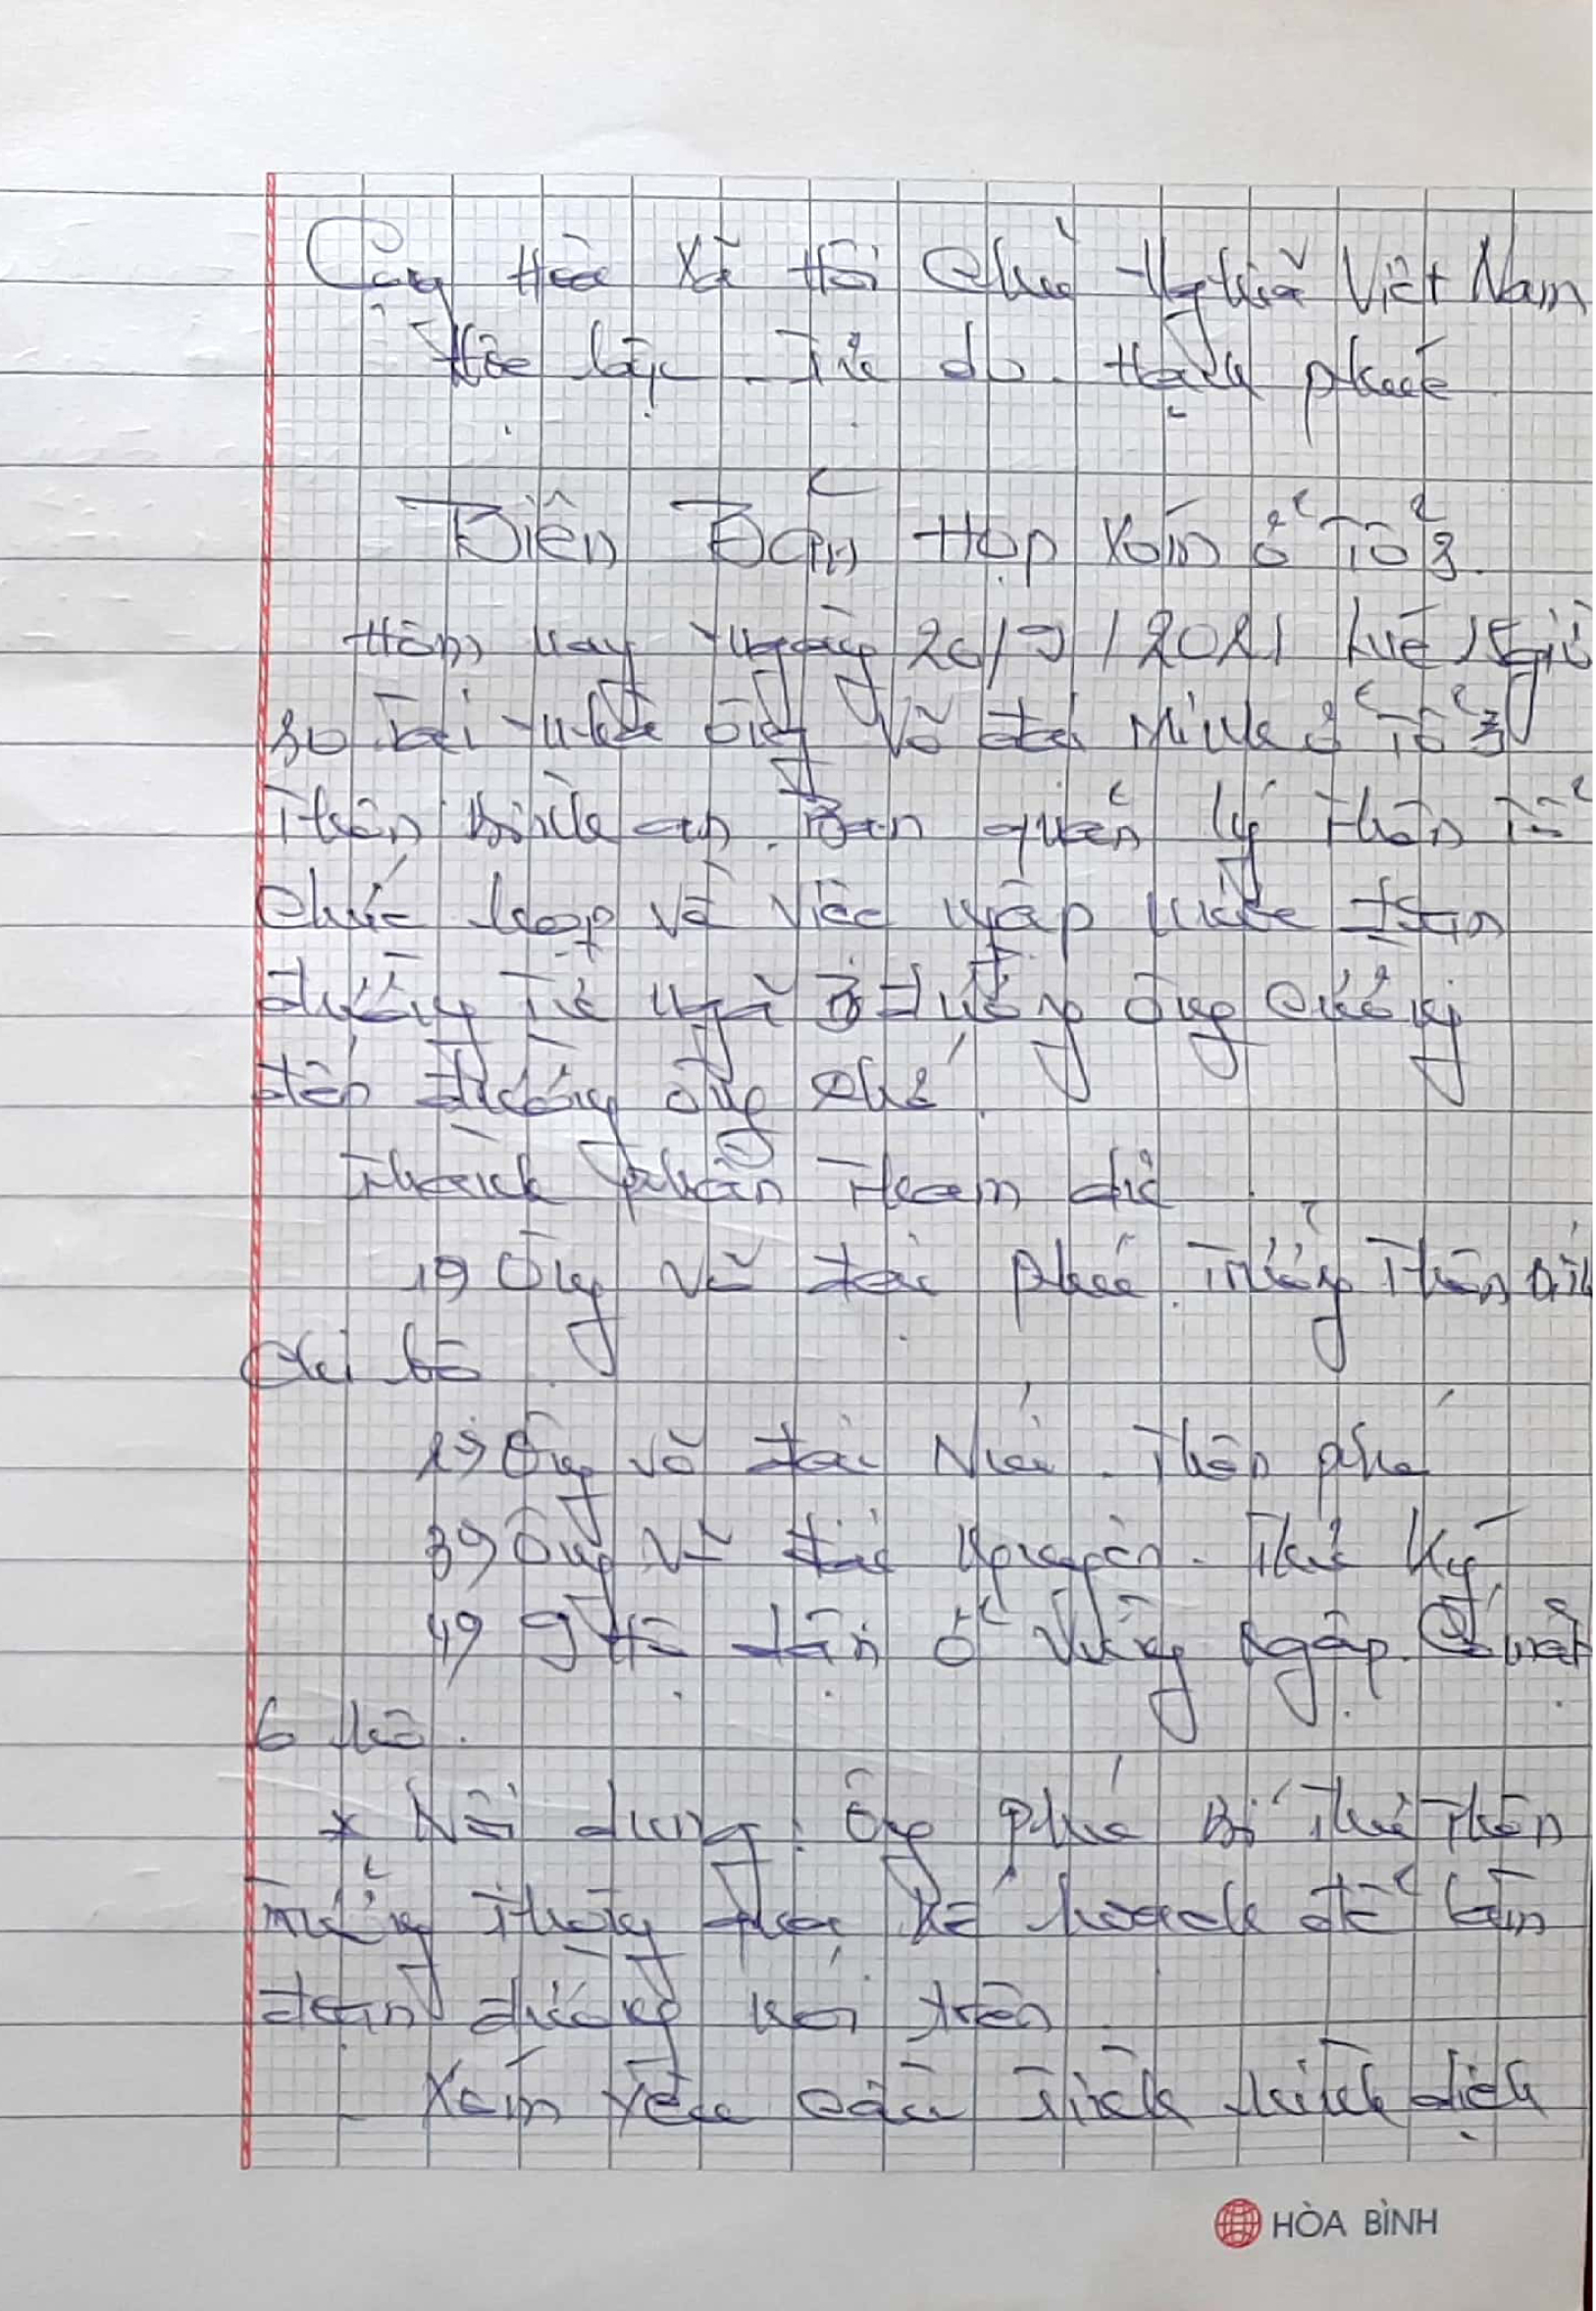 Cộng Hòa Xã Hội Chủ Nghĩa Việt Nam
Độc lập - Tự do - Hạnh phúc
Biên Bản Họp Xóm ở Tổ 3.
Hôm nay ngày 26/9/2021 lúc 15 giờ
30 tại nhà ông Võ Đại Minh ở Tổ 3
Thôn Bình an. Ban quản lý thôn Tổ
Chức họp về việc ngập nước đoạn
đường Từ ngã 3 đường ông
đến đường ông
Thành phần Tham dự
1, Ông Võ Đại Phúc. Trưởng Thôn
Chi bộ.
2, Ông Võ Đại. Thôn phó
3, Ông Võ Đại Nguyên. Thư ký
4, 9 Hộ dân ở Vùng ngập. Có mặt
6 hộ.
* Nội dung: Ông Phó Bí Thư Thôn
Trưởng Thông qua kế hoạch để làm
đoạn đường nói trên.
- Xóm yêu cầu Tình hình dịch
HÒA BÌNH